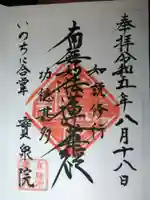 奉拝令和五年八月十八日
如説修行
南無妙法蓮華経
功徳甚多
いのちに合掌
寶泉院